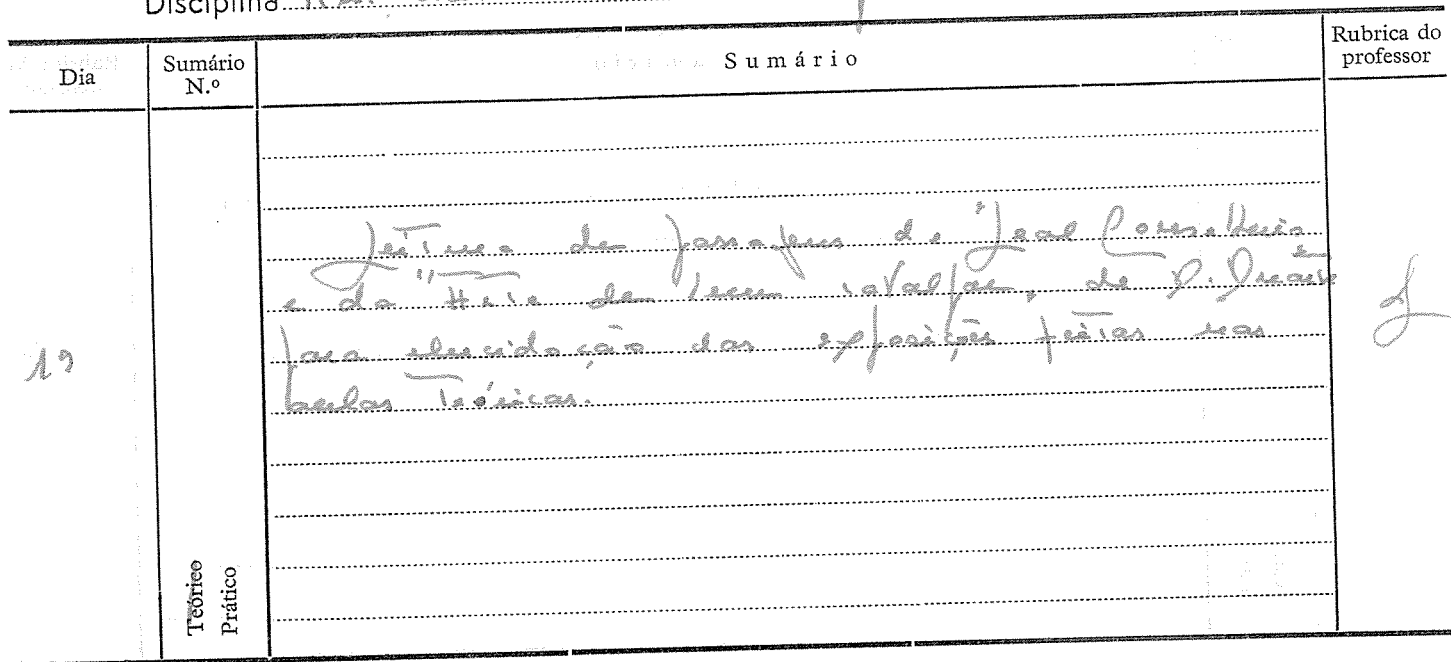 Disciplina
Dia
Sumário N.º
Sumário
Rubrica do professor
Leitura de passagens do "Leal Conselheiro
e da "Arte de bem cavalgar, de D. Duarte
para elucidação das exposições feitas nas
aulas teóricas.
19
Teórico
Prático